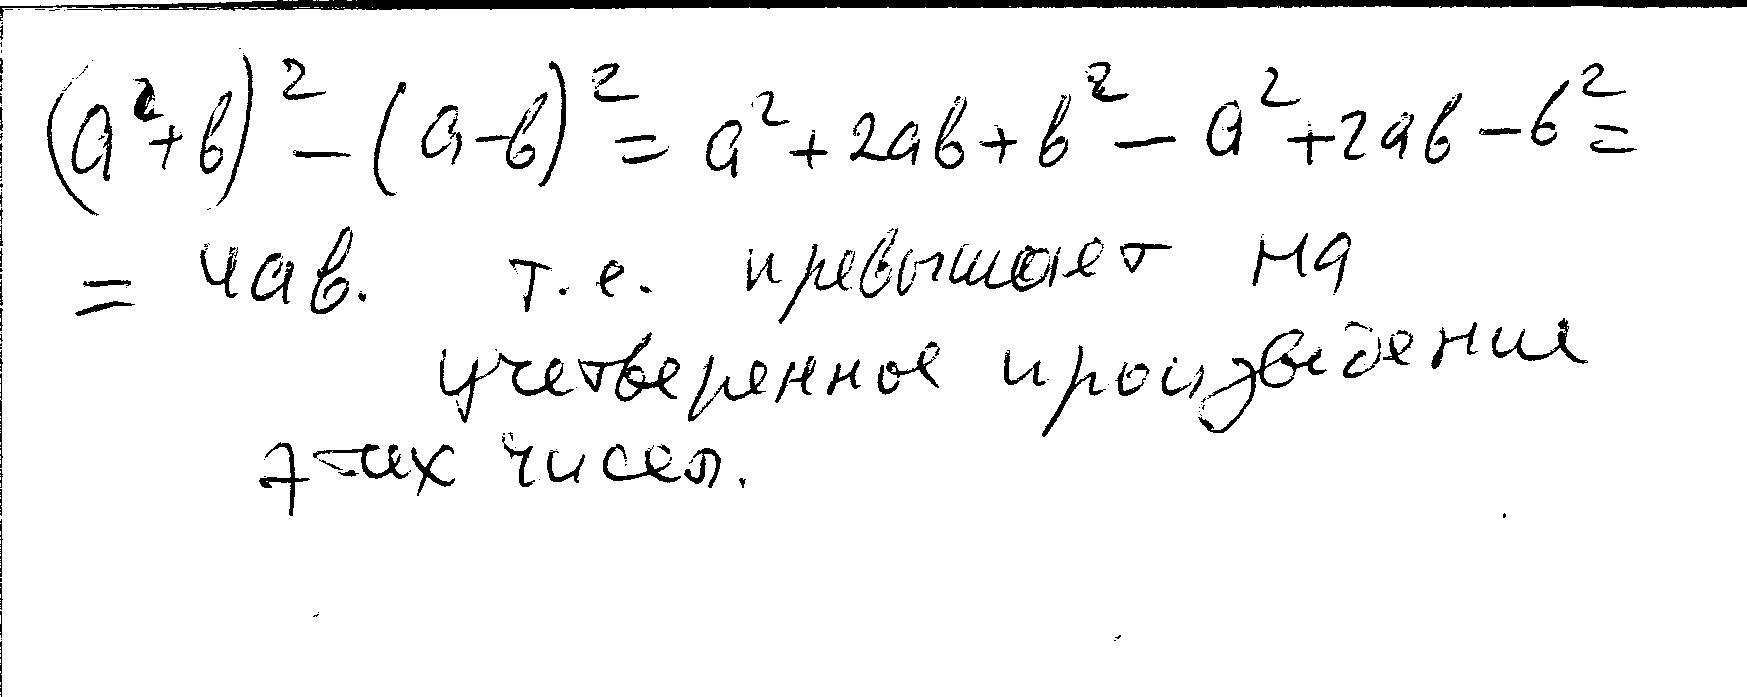 (a²+b)² - (a-b)² = a² + 2ab + b² - a² + 2ab - b² =
= 4ab. т.е. превышает на
учетверенное произведение
этих чисел.